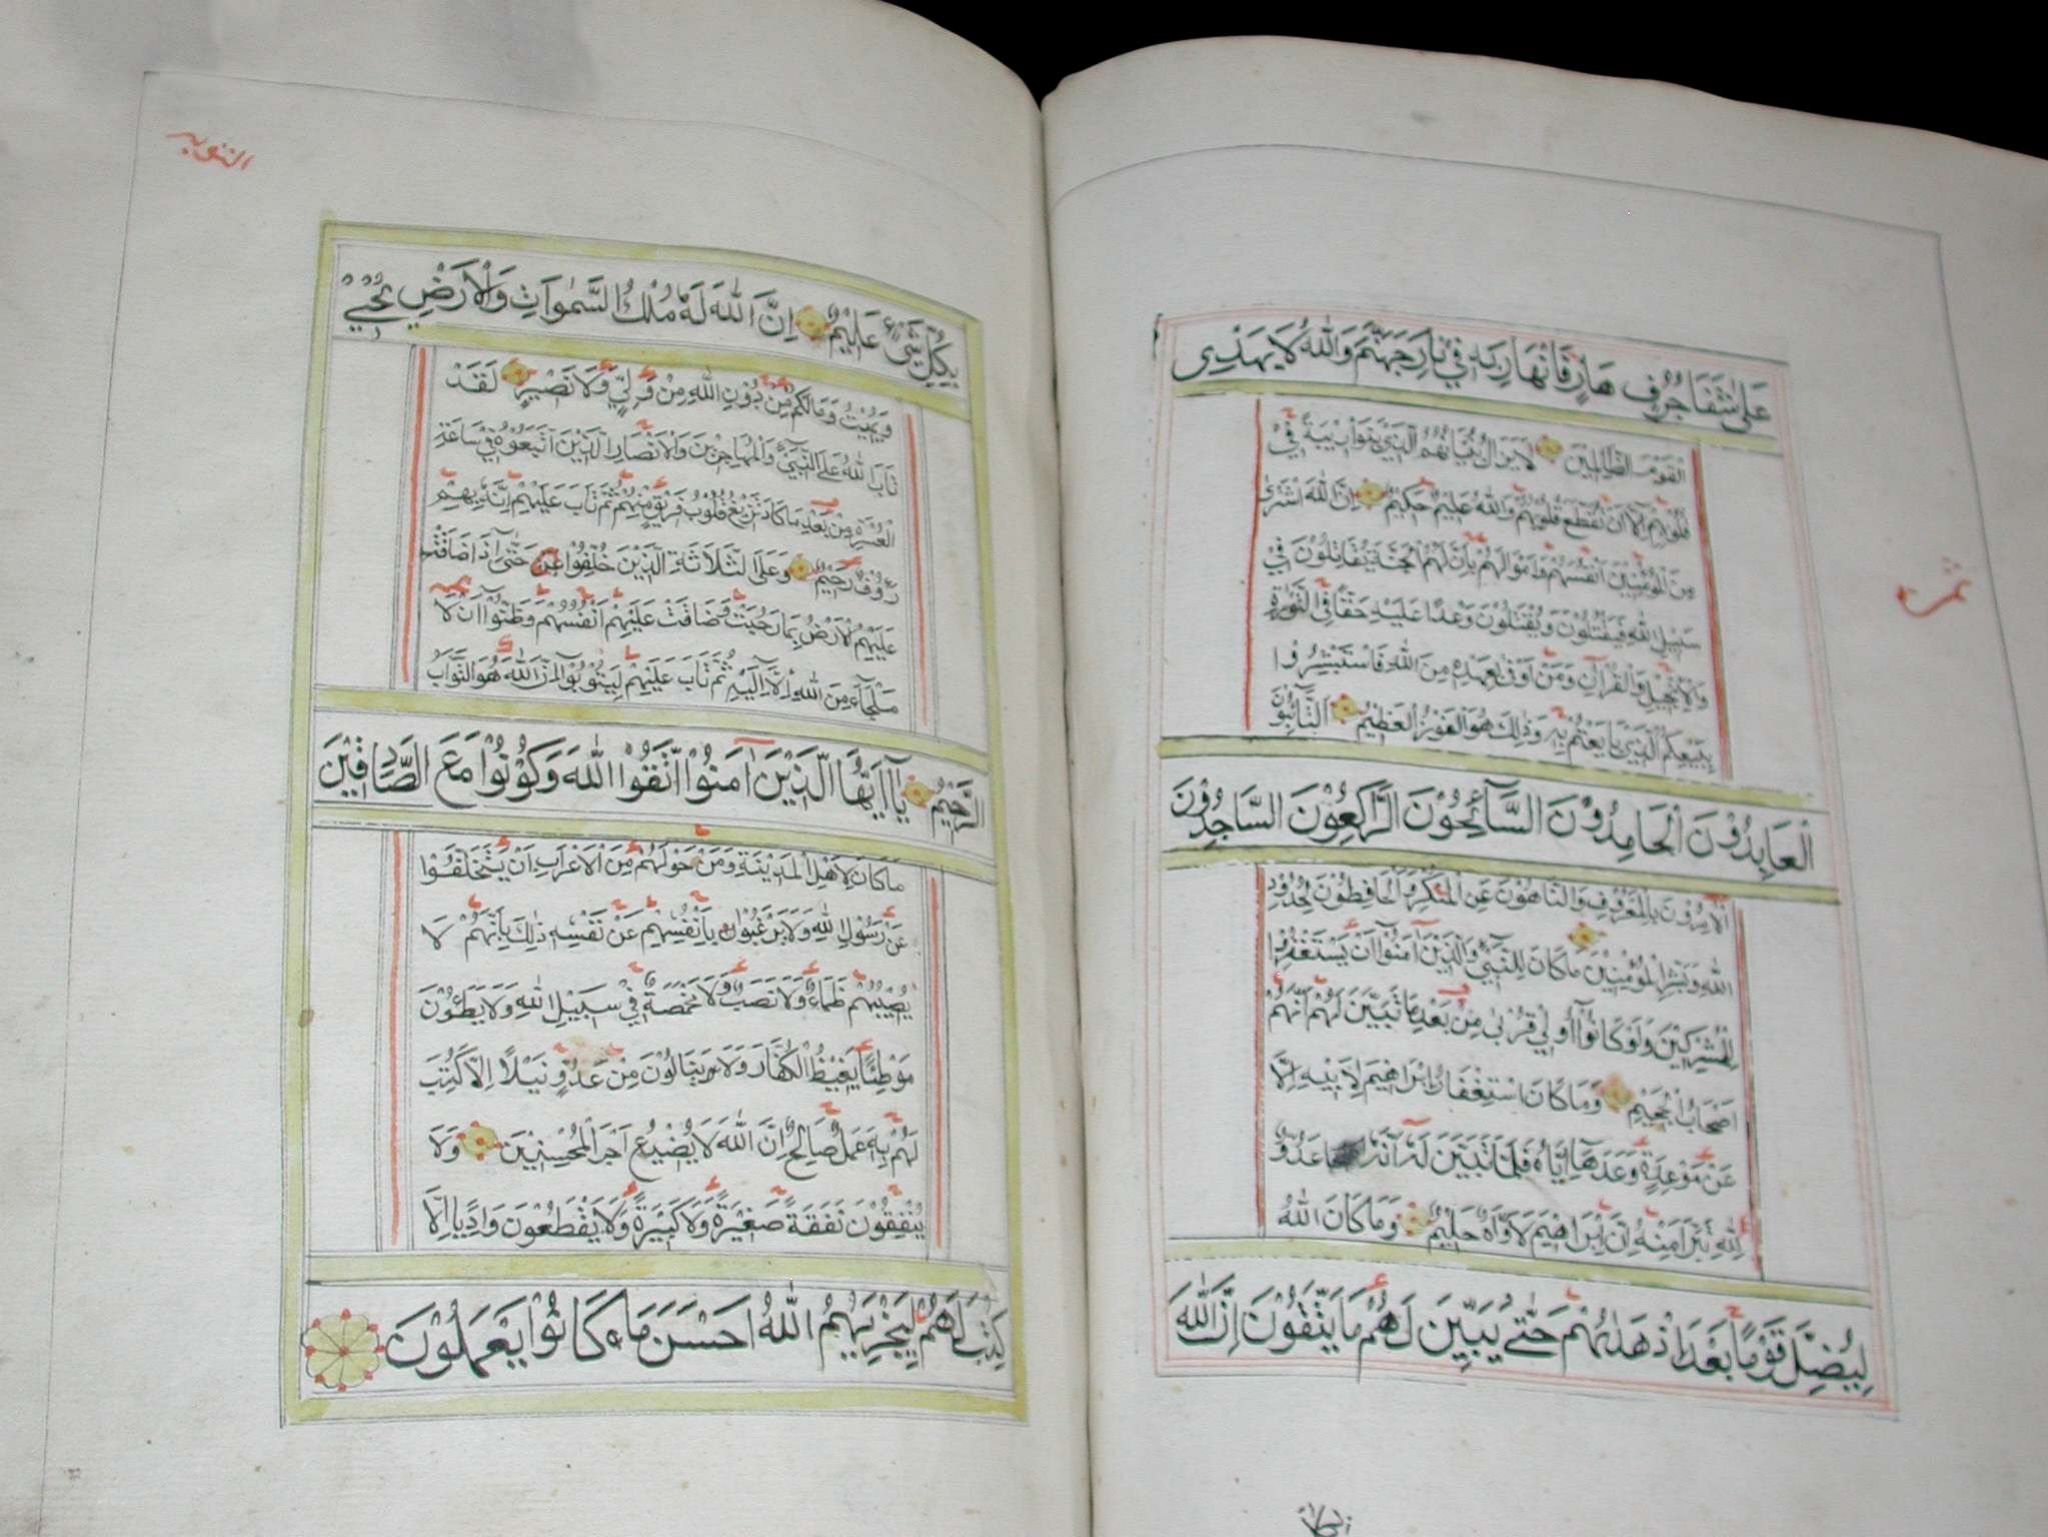 على شفا جرف هار فانهار به في نار جهنم والله لا يهدي
القوم الظالمين لا يزال بنيانهم الذي بنوا ريبة في
قلوبهم الا ان تقطع قلوبهم والله عليم حكيم ان الله اشترى
من المؤمنين انفسهم واموالهم بان لهم الجنة يقاتلون في
سبيل الله فيقتلون ويقتلون وعدا عليه حقا في التورية
والانجيل والقرآن ومن اوفى بعهده من الله فاستبشروا
ببيعكم الذي بايعتم به وذلك هو الفوز العظيم التائبون
العابدون الحامدون السآئحون الراكعون الساجدون
الآمرون بالمعروف والناهون عن المنكر والحافظون لحدود
الله وبشر المؤمنين ما كان للنبي والذين آمنوا ان يستغفروا
للمشركين ولو كانوا اولي قربى من بعد ما تبين لهم انهم
اصحاب الجحيم وما كان استغفار ابراهيم لابيه الا
عن موعدة وعدها اياه فلما تبين له انه عدو
لله تبرأ منه ان ابراهيم لاواه حليم وما كان الله
ليضل قوما بعد اذ هداهم حتى يبين لهم ما يتقون ان الله
التوبة
بكل شيء عليم ان الله له ملك السموات والارض يحيي
ويميت وما لكم من دون الله من ولي ولا نصير لقد
تاب الله على النبي والمهاجرين والانصار الذين اتبعوه في ساعة
العسرة من بعد ما كاد تزيغ قلوب فريق منهم ثم تاب عليهم انه بهم
رؤف رحيم وعلى الثلاثة الذين خلفوا حتى اذا ضاقت
عليهم الارض بما رحبت وضاقت عليهم انفسهم وظنوا ان لا
ملجاء من الله الا اليه ثم تاب عليهم ليتوبوا ان الله هو التواب
الرحيم يآ ايها الذين آمنوا اتقوا الله وكونوا مع الصادقين
ما كان لاهل المدينة ومن حولهم من الاعراب ان يتخلفوا
عن رسول الله ولا يرغبوا بانفسهم عن نفسه ذلك بانهم لا
يصيبهم ظماء ولا نصب ولا مخمصة في سبيل الله ولا يطئون
موطئا يغيظ الكفار ولا ينالون من عدو نيلا الا كتب
لهم به عمل صالح ان الله لا يضيع اجر المحسنين ولا
ينفقون نفقة صغيرة ولا كبيرة ولا يقطعون واديا الا
كتب لهم ليجزيهم الله احسن ما كانوا يعملون